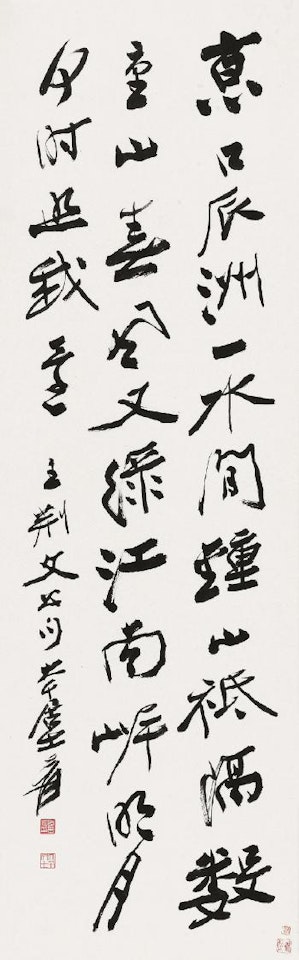 京口瓜洲一水間鍾山祗隔數
重山春風又綠江南岸明月
何時照我還
王荊文公句 爰